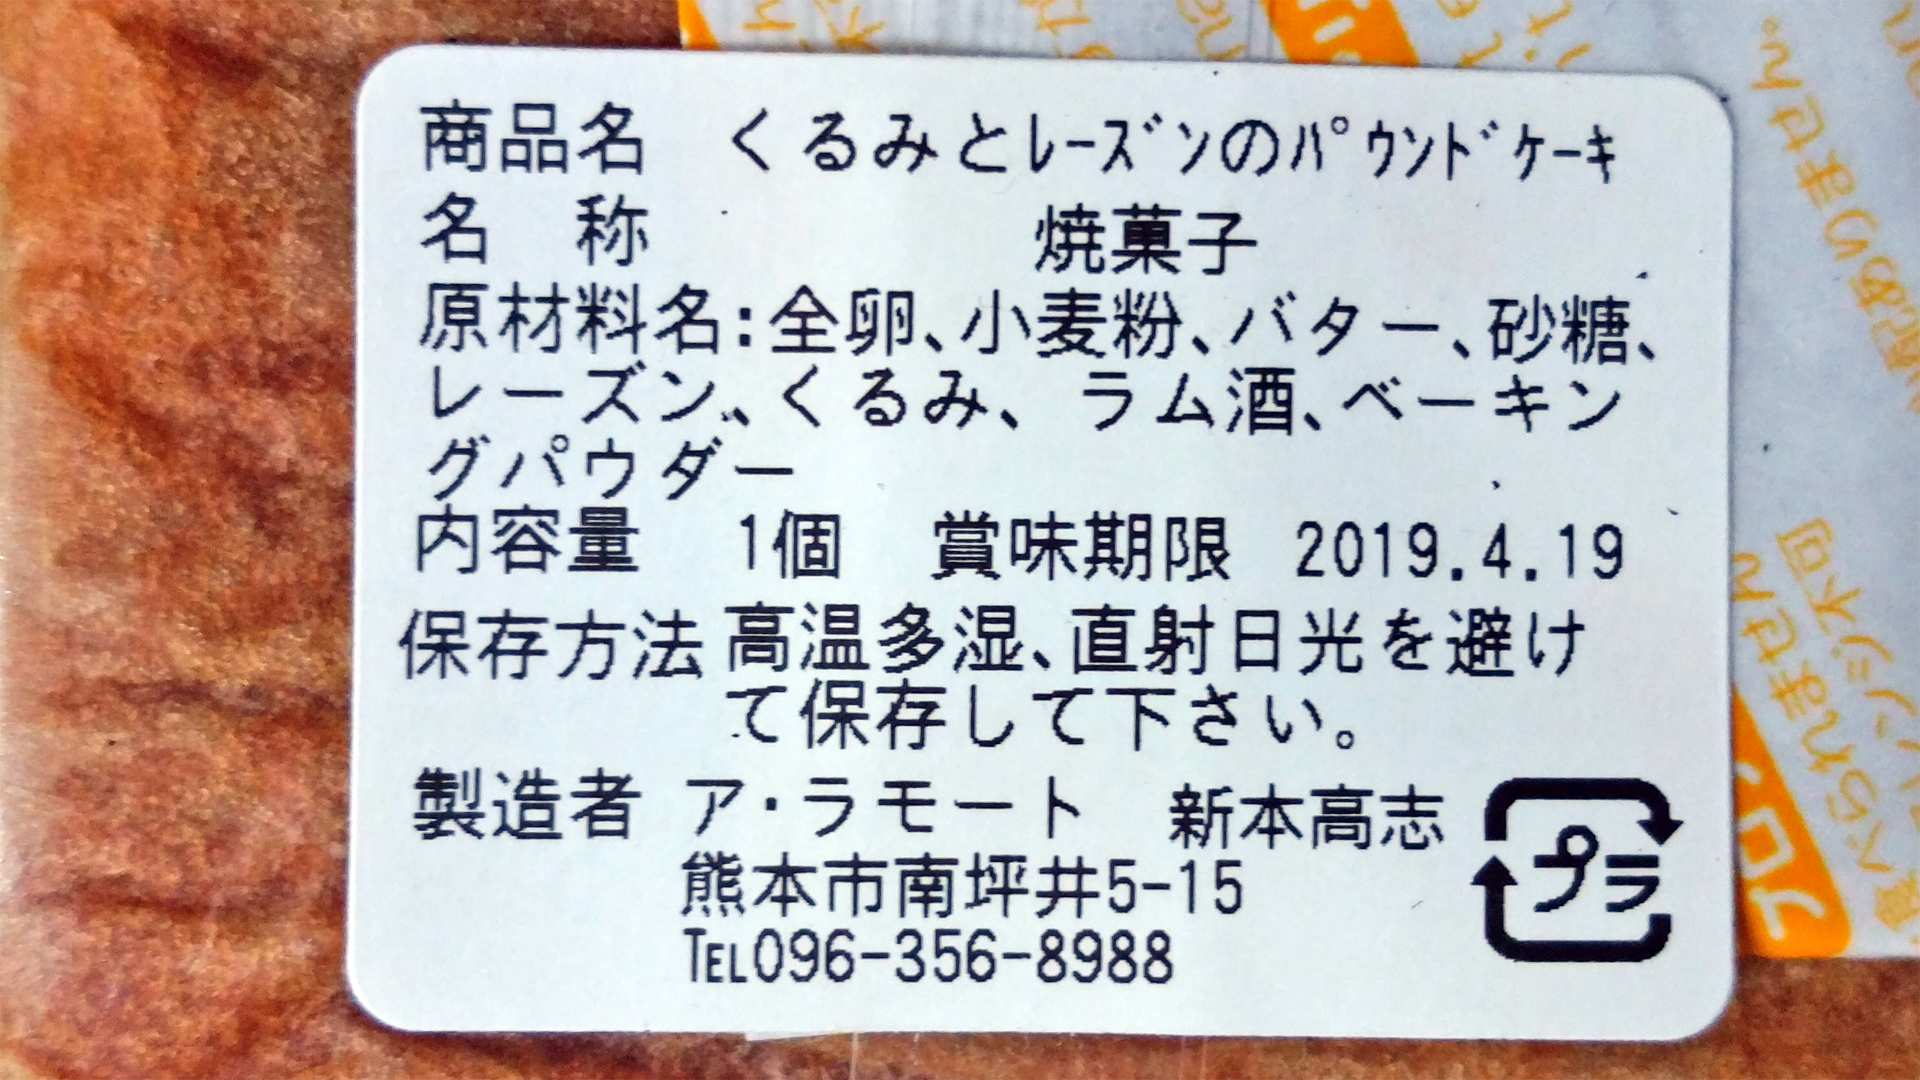 商品名 くるみとﾚｰｽﾞﾝのﾊﾟｳﾝﾄﾞｹｰｷ
名 称 焼菓子
原材料名:全卵、小麦粉、バター、砂糖、
レーズン、くるみ、ラム酒、ベーキン
グパウダー
内容量 1個 賞味期限 2019.4.19
保存方法 高温多湿、直射日光を避け
て保存して下さい。
製造者 ア・ラモート 新本高志
熊本市南坪井5-15
TEL096-356-8988
プラ